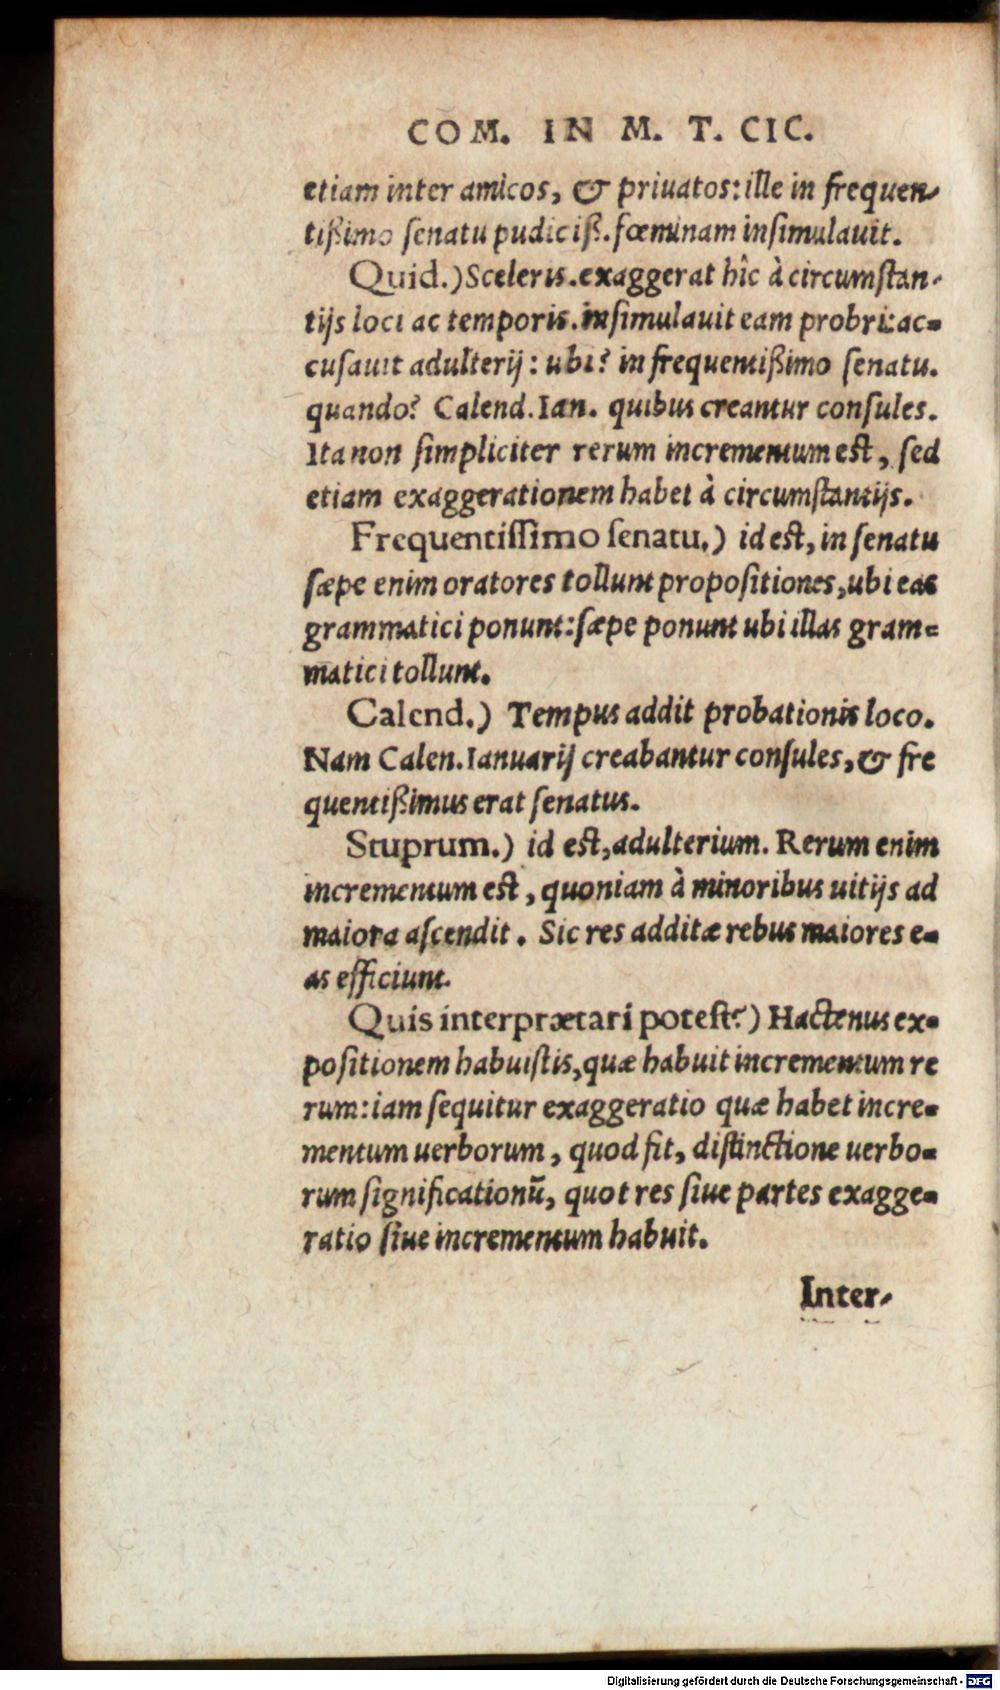 COM. IN M. T. CIC.
etiam inter amicos, & priuatos: ille in frequen-
tißimo ſenatu pudiciß. fœminam inſimulauit.
Quid.) Sceleris. exaggerat hîc à circumſtan-
tijs loci ac temporis. inſimulauit eam probri: ac-
cuſauit adulterij: ubi? in frequentißimo ſenatu.
quando? Calend. Ian. quibus creantur conſules.
Ita non ſimpliciter rerum incrementum eſt, ſed
etiam exaggerationem habet à circumſtantijs.
Frequentiſſimo ſenatu.) id eſt, in ſenatu
ſæpe enim oratores tollunt propoſitiones, ubi eas
grammatici ponunt: ſæpe ponunt ubi illas gram-
matici tollunt.
Calend.) Tempus addit probationis loco.
Nam Calen. Ianuarij creabantur conſules, & fre
quentißimus erat ſenatus.
Stuprum.) id eſt, adulterium. Rerum enim
incrementum eſt, quoniam à minoribus uitijs ad
maiora aſcendit. Sic res additæ rebus maiores e-
as efficiunt.
Quis interprætari poteſt?) Hactenus ex-
poſitionem habuiſtis, quæ habuit incrementum re
rum: iam ſequitur exaggeratio quæ habet incre-
mentum uerborum, quod fit, diſtinctione uerbo-
rum ſignificationū, quot res ſiue partes exagge-
ratio ſiue incrementum habuit.
Inter-
Digitalisierung gefördert durch die Deutsche Forschungsgemeinschaft - DFG